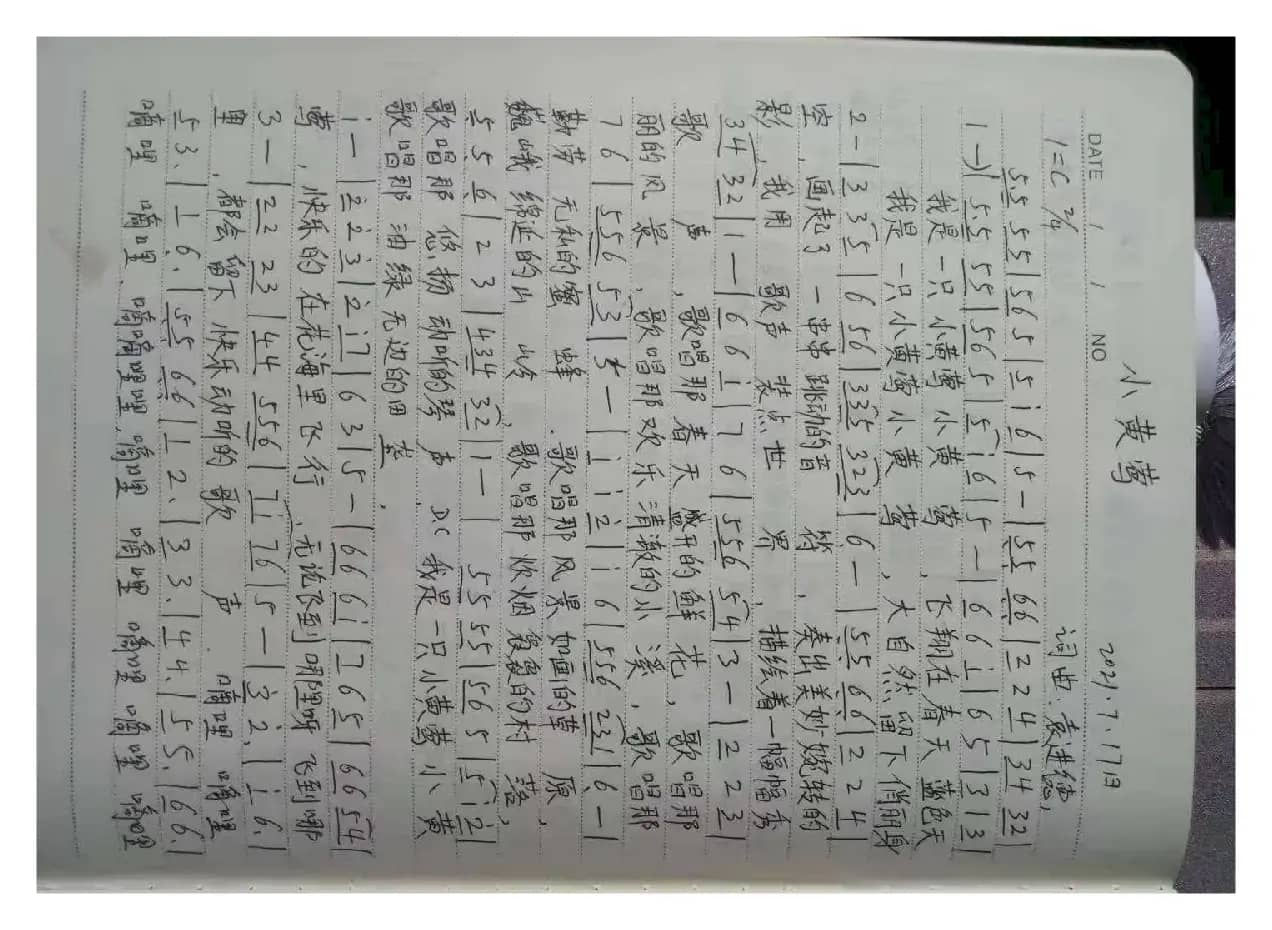 DATE / / NO
小黄莺 2021.7.17日
1=C 2/4 词曲:袁进德,
5.5 5 5 | 5 6 5 | 5 i 6 | 5 — | 5 5 6 6 | 2 2 4 | 3 4 3 2 |
1 —) | 5.5 5 5 | 5 6 5 | 5 i 6 | 5 — | 6 6 i | 6 5 | 3 1 3 |
我是一只小黄莺小黄莺,飞翔在春天蓝色天
我是一只小黄莺小黄莺,大自然留下俏丽身
2 — | 3 3 5 | 6 5 6 | 3 3 5 3 2 3 | 6 — | 5 5 6 6 | 2 2 4 |
空,画起了一串串跳动的音符,奏出美妙婉转的
影,我用歌声装点世界,描绘着一幅幅秀
3 4 3 2 | 1 — | 6 6 i | 7 6 | 5 5 6 5 4 | 3 — | 2 2 3 |
歌声,歌唱那春天盛开的鲜花,歌唱那
丽的风景,歌唱那欢乐清澈的小溪,歌唱那
7 6 | 5 5 6 5 3 | 5 — | i i 2 | i 6 | 5 5 6 2 3 1 | 6 — |
勤劳无私的蜜蜂.歌唱那风景如画的草原,
巍峨绵延的山岭,歌唱那炊烟袅袅的村落,
5 5 6 | 2 3 | 4 3 4 3 2 | 1 — | 5 5 5 5 | 5 6 5 | 5 i 2 |
歌唱那悠扬动听的琴声.D.C我是一只小黄莺小黄
歌唱那油绿无边的田
i — | 2 2 3 | 2 i 7 | 6 3 | 5 — | 6 6 6 i | 7 6 5 | 6 6 5 4 |
莺,快乐的在花海里飞行.无论飞到哪里呀飞到哪
3 — | 2 2 2 3 | 4 4 5 5 6 | 7 i 7 6 | 5 — | 3 2. | i 6. |
里,都会留下快乐动听的歌声.嘀哩嘀哩
5 3. | 1 6. | 5 5 6 6 | 1 2. | 3 3. | 4 4. | 5 5. | 6 6. |
嘀哩嘀哩,嘀嘀哩哩,嘀哩嘀哩嘀哩嘀哩嘀哩